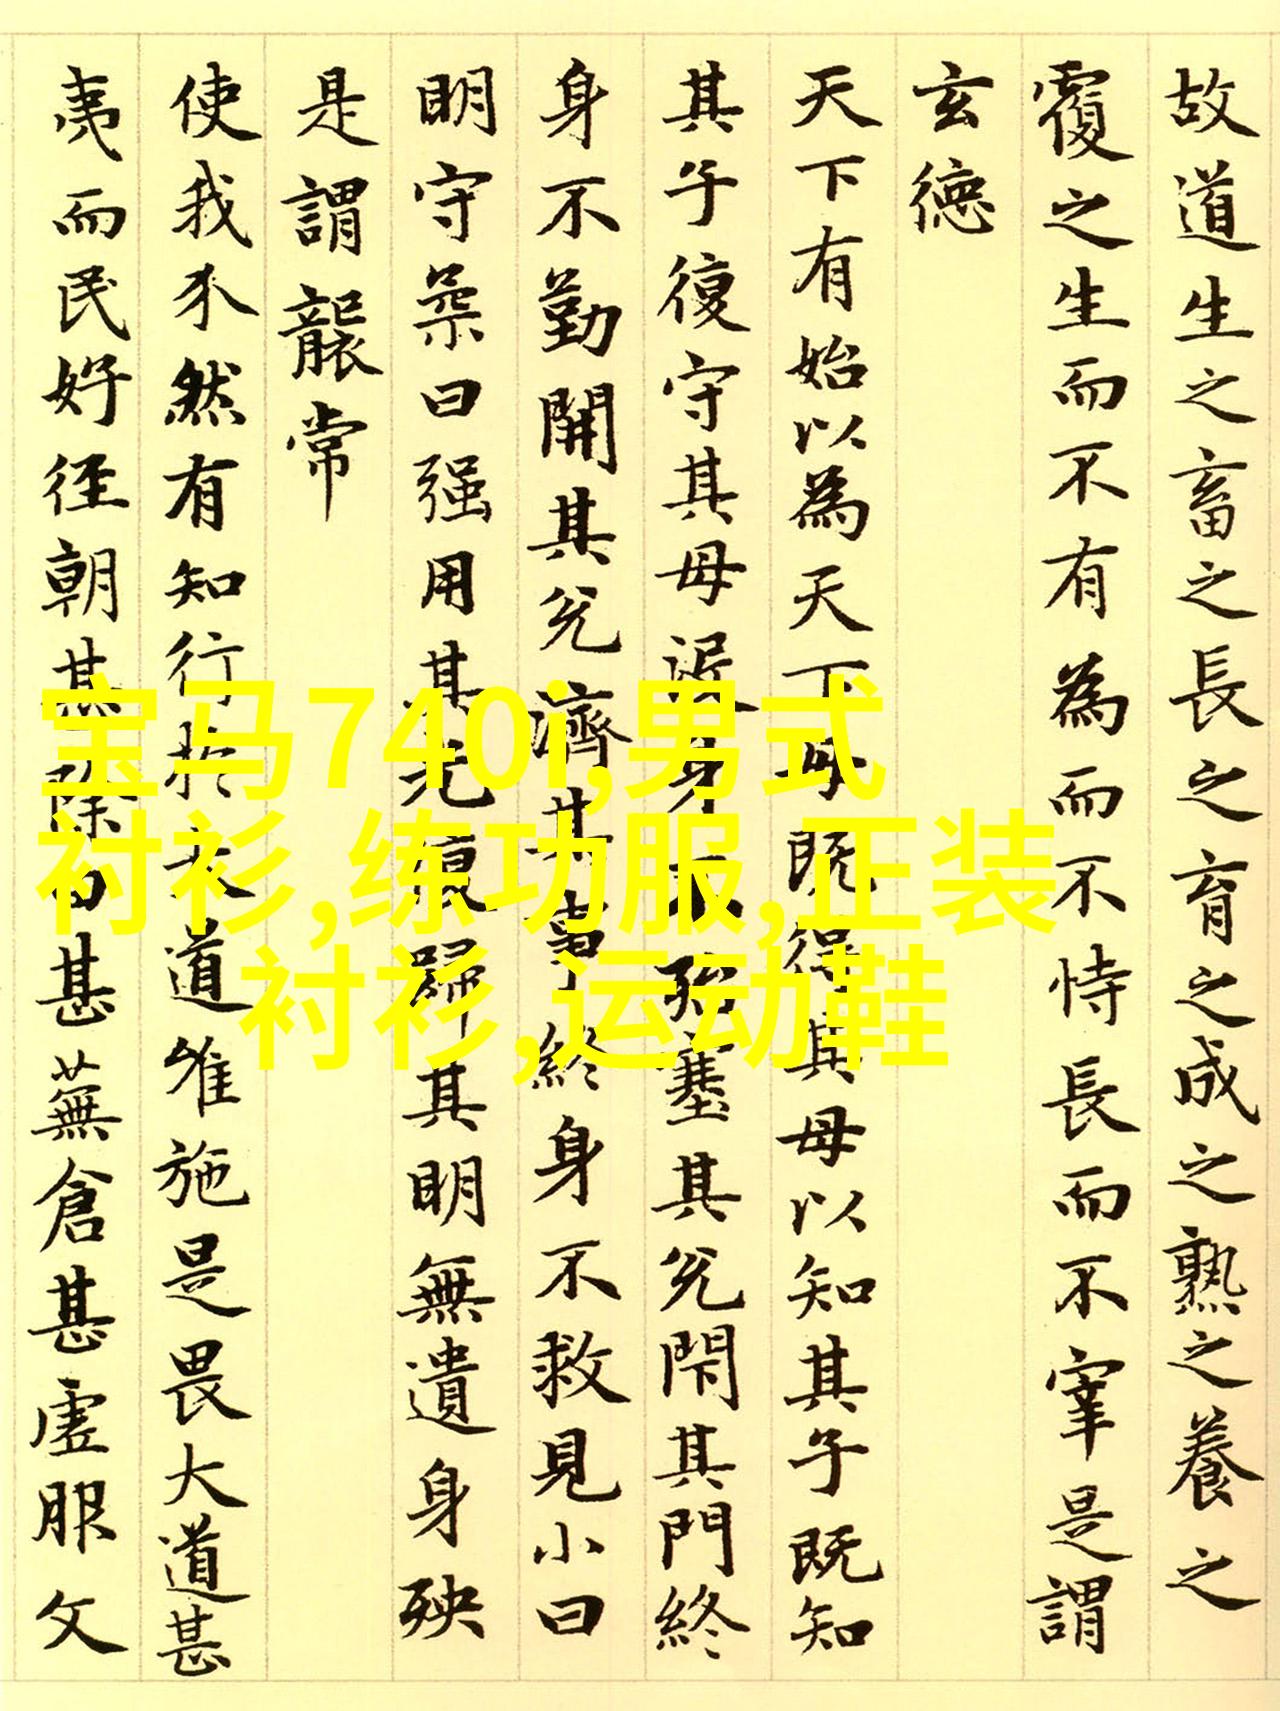 故道生之畜之長之育之成之熟之養之
覆之生而不有為而不恃長而不宰是謂
玄德
天下有始以為天下母既得其母以知其子既知
其子復守其母没身不殆塞其兌閉其門終
身不勤開其兌濟其事終身不救見小曰
明守柔曰强用其光復歸其明無遺身殃
是謂襲常
使我介然有知行於大道唯施是畏大道甚
夷而民好徑朝甚除田甚蕪倉甚虚服文
宝马740i,男式
衬衫,练功服,正装
衬衫,运动鞋